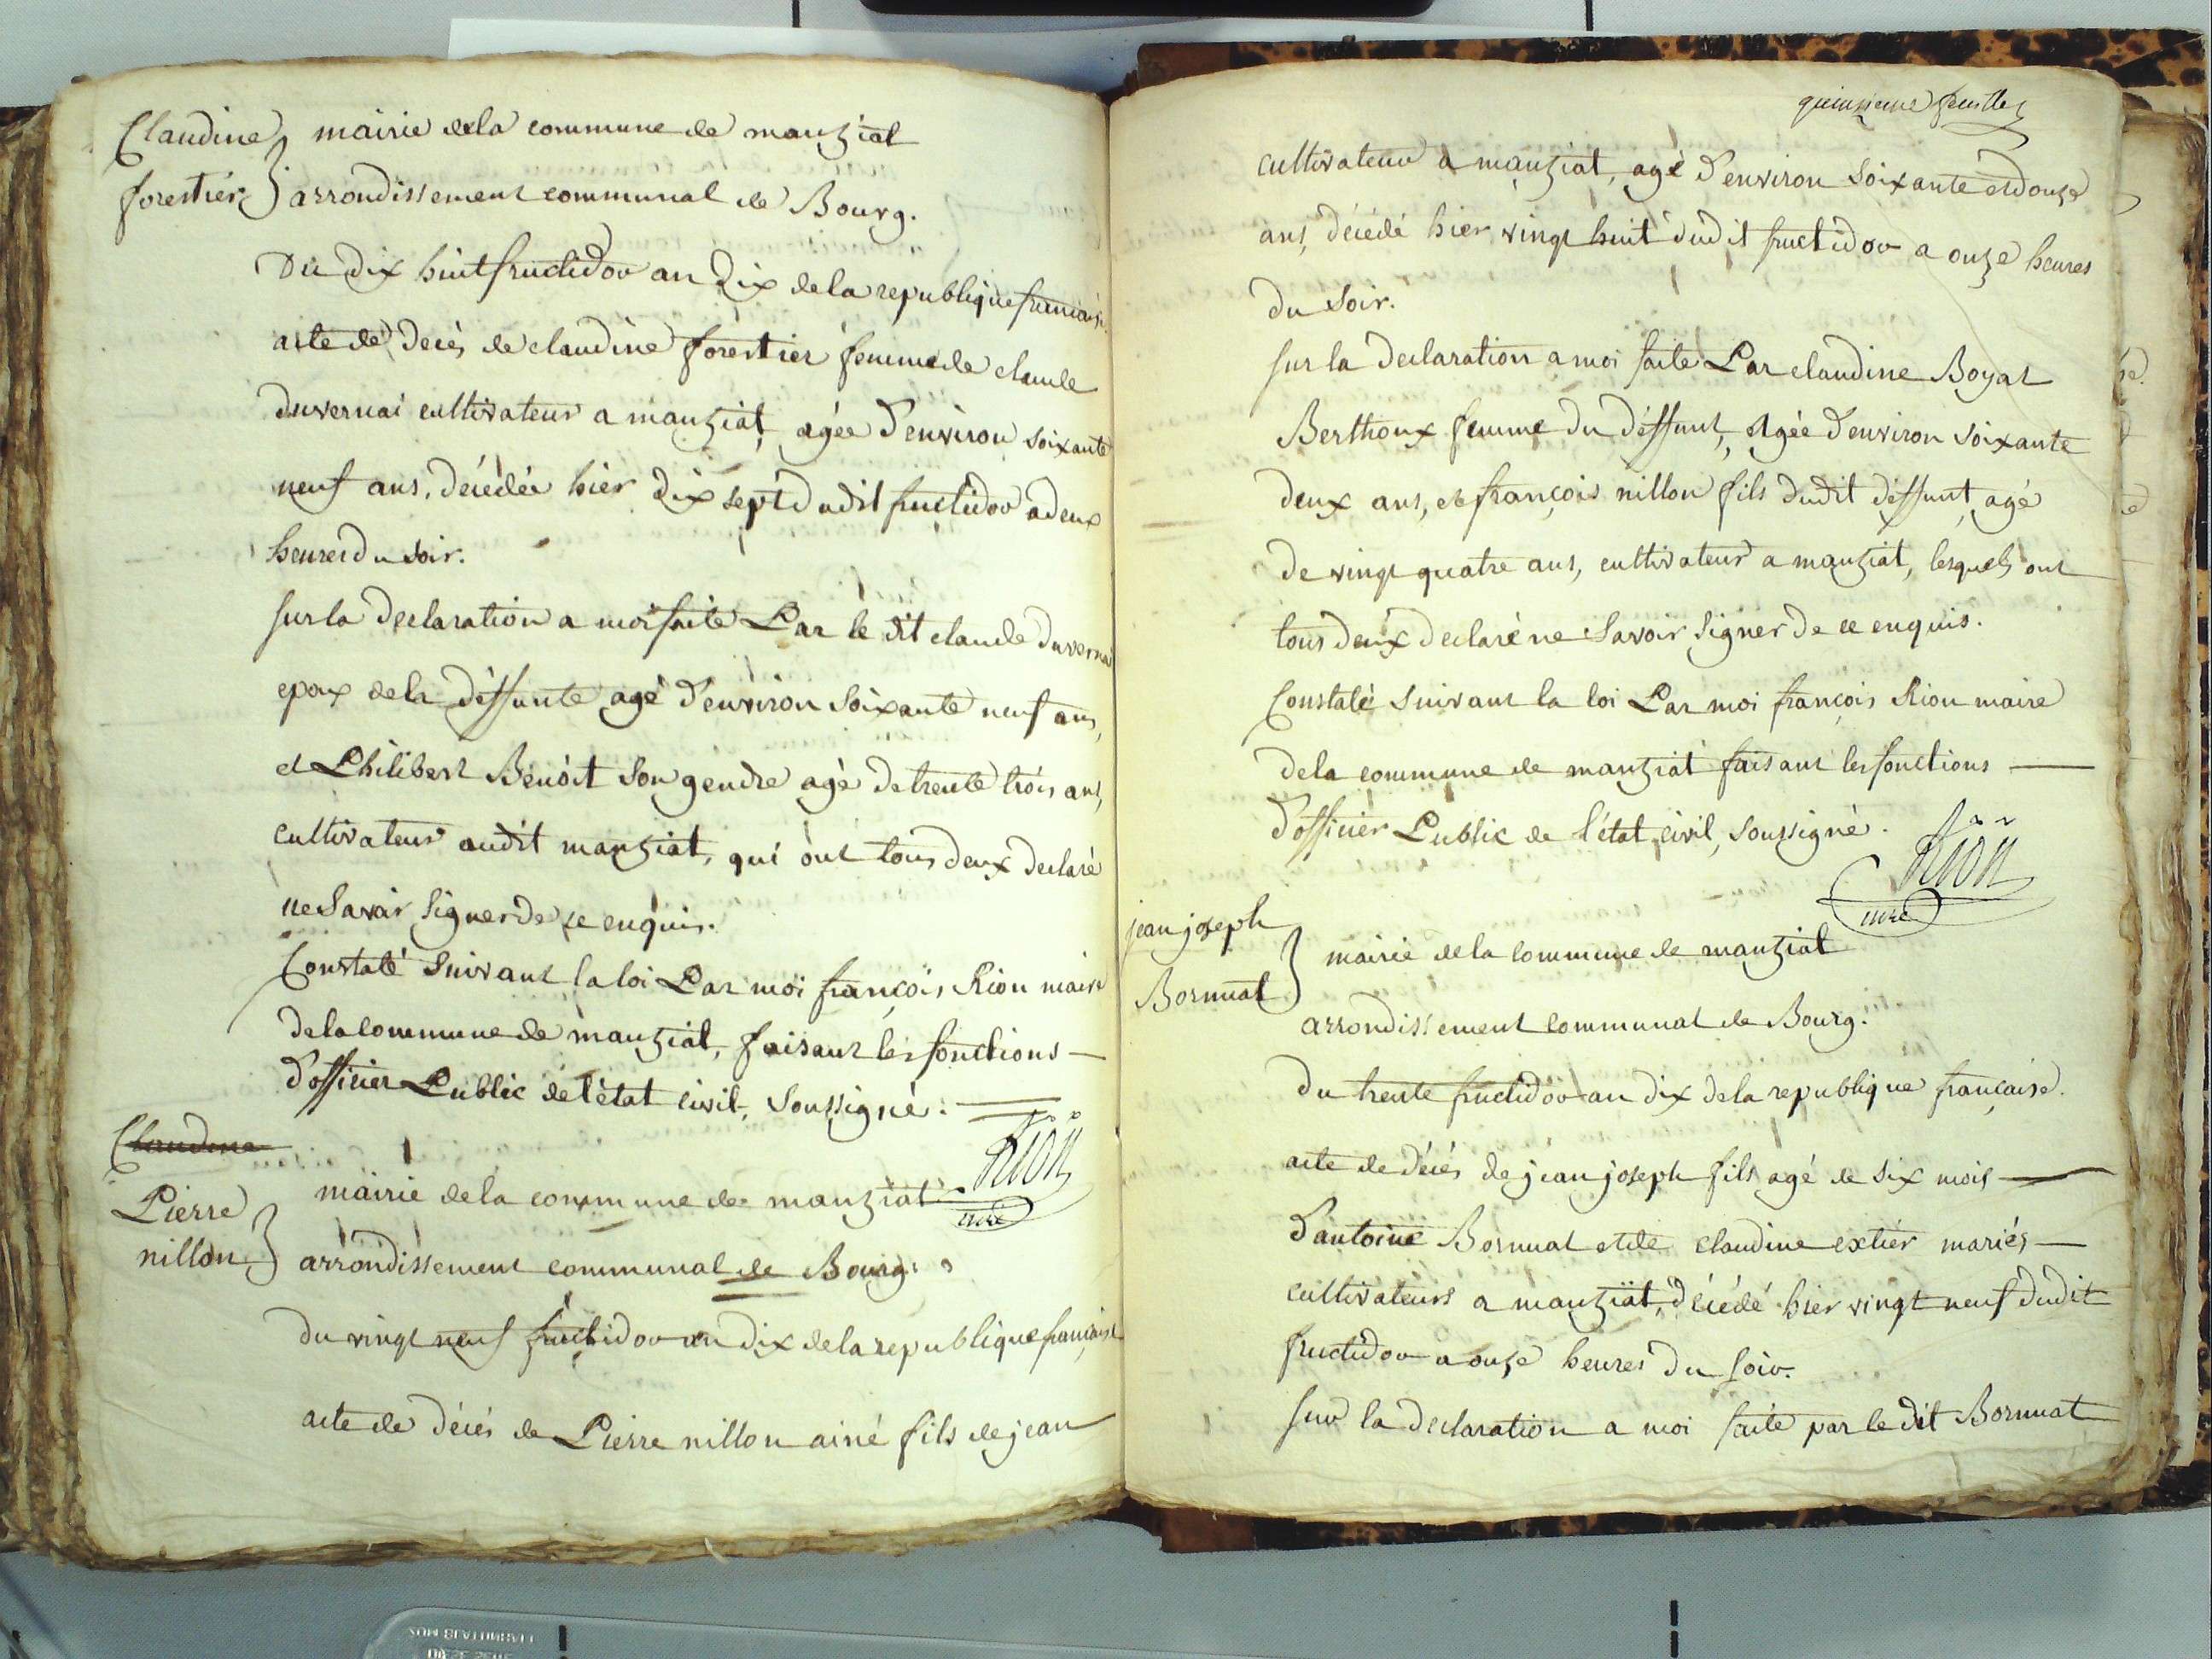 Claudine
forestier
mairie de la commune de manziat
arrondissement communal de Bourg.
Du dix huit fructidor an dix de la republique francaise.
acte de decés de claudine forestier femme de claude
duvernai cultivateur a manziat, agée d'environ soixante
neuf ans, décédée hier dix sept dudit fructidor a deux
heures du soir.
sur la declaration a moi faite Par le dit claude duvernai
epoux de la déffunte agé d'environ soixante neuf ans,
et Philibert Benoit son gendre agé de trente trois ans,
cultivateur audit manziat, qui ont tous deux declaré
ne savoir signer de ce enquis.
Constaté suivant la loi Par moi françois Rion maire
de la commune de manziat, faisant les fonctions
d'officier Public de l'état civil, soussigné.
Rion
Claudine
Pierre
nillon
mairie de la commune de manziat
arrondissement communal de Bourg.
du vingt neuf fructidor an dix de la republique française
acte de décés de Pierre nillon ainé fils de jean
quinzieme feuillet
cultivateur a manziat, agé d'environ soixante et douze
ans, décédé hier vingt huit dudit fructidor a onze heures
du soir.
sur la declaration a moi faite Par claudine Boyat
Berthoux femme du déffunt, agée d'environ soixante
deux ans, et françois nillon fils dudit déffunt, agé
de vingt quatre ans, cultivateur a manziat, lesquels ont
tous deux declaré ne savoir signer de ce enquis.
Constaté suivant la loi Par moi françois Rion maire
de la commune de manziat faisant les fonctions
d'officier Public de l'état civil, soussigné.
Rion
jean joseph
Bornuat
mairie de la commune de manziat
arrondissement communal de Bourg.
du trente fructidor an dix de la republique française.
acte de décés de jean joseph fils agé de six mois
d'antoine Bornuat et de claudine extier mariés
cultivateurs a manziat, décédé hier vingt neuf dudit
fructidor a onze heures du soir.
sur la declaration a moi faite par le dit Bornuat